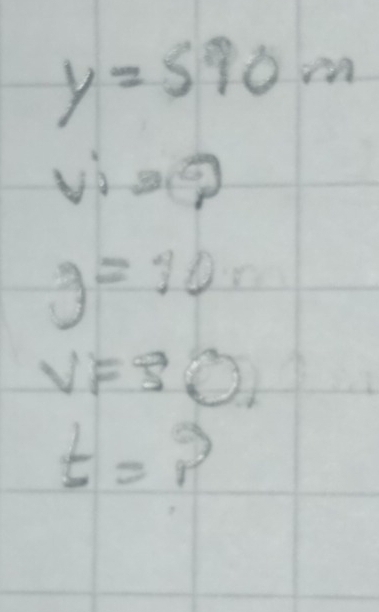 y = 590 m
vi = ?
g = 10 m
vi = 80
t = ?